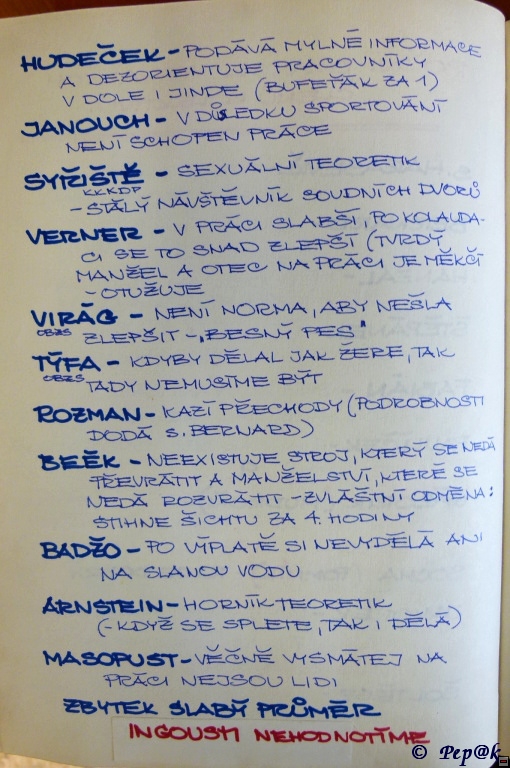 HUDEČEK - PODÁVÁ MYLNÉ INFORMACE
A DEZORIENTUJE PRACOVNÍKY
V DOLE I JINDE (BUFEŤÁK ZA 1)
JANOUCH - V DŮSLEDKU SPORTOVÁNÍ
NENÍ SCHOPEN PRÁCE
SYŘIŠTĚ - SEXUÁLNÍ TEORETIK
K.K.KDP
- STÁLÝ NÁVŠTĚVNÍK SOUDNÍCH DVORŮ
VERNER - V PRÁCI SLABŠÍ, PO KOLAUDA-
CI SE TO SNAD ZLEPŠÍ (TVRDÝ
MANŽEL A OTEC NA PRÁCI JE MĚKČÍ
- OTUŽUJE
VIRÁG - NENÍ NORMA, ABY NEŠLA
OBZS ZLEPŠIT - „BESNÝ PES"
TÝFA - KDYBY DĚLAL JAK ŽERE, TAK
OBZS TADY NEMUSÍME BÝT
ROZMAN - KAZÍ PŘECHODY (PODROBNOSTI
DODÁ S. BERNARD)
BEĚK - NEEXISTUJE STROJ, KTERÝ SE NEDÁ
PŘEVRÁTIT A MANŽELSTVÍ, KTERÉ SE
NEDÁ ROZVRÁTIT - ZVLÁŠTNÍ ODMĚNA:
STIHNE ŠICHTU ZA 4. HODINY
BADŽO - PO VÝPLATĚ SI NEVYDĚLÁ ANI
NA SLANOU VODU
ARNSTEIN - HORNÍK TEORETIK
(- KDYŽ SE SPLETE, TAK I DĚLÁ)
MASOPUST - VĚČNĚ VYSMÁTEJ NA
PRÁCI NEJSOU LIDI
ZBYTEK SLABÝ PRŮMĚR
INGOUSTI NEHODNOTÍME
© Pep@k